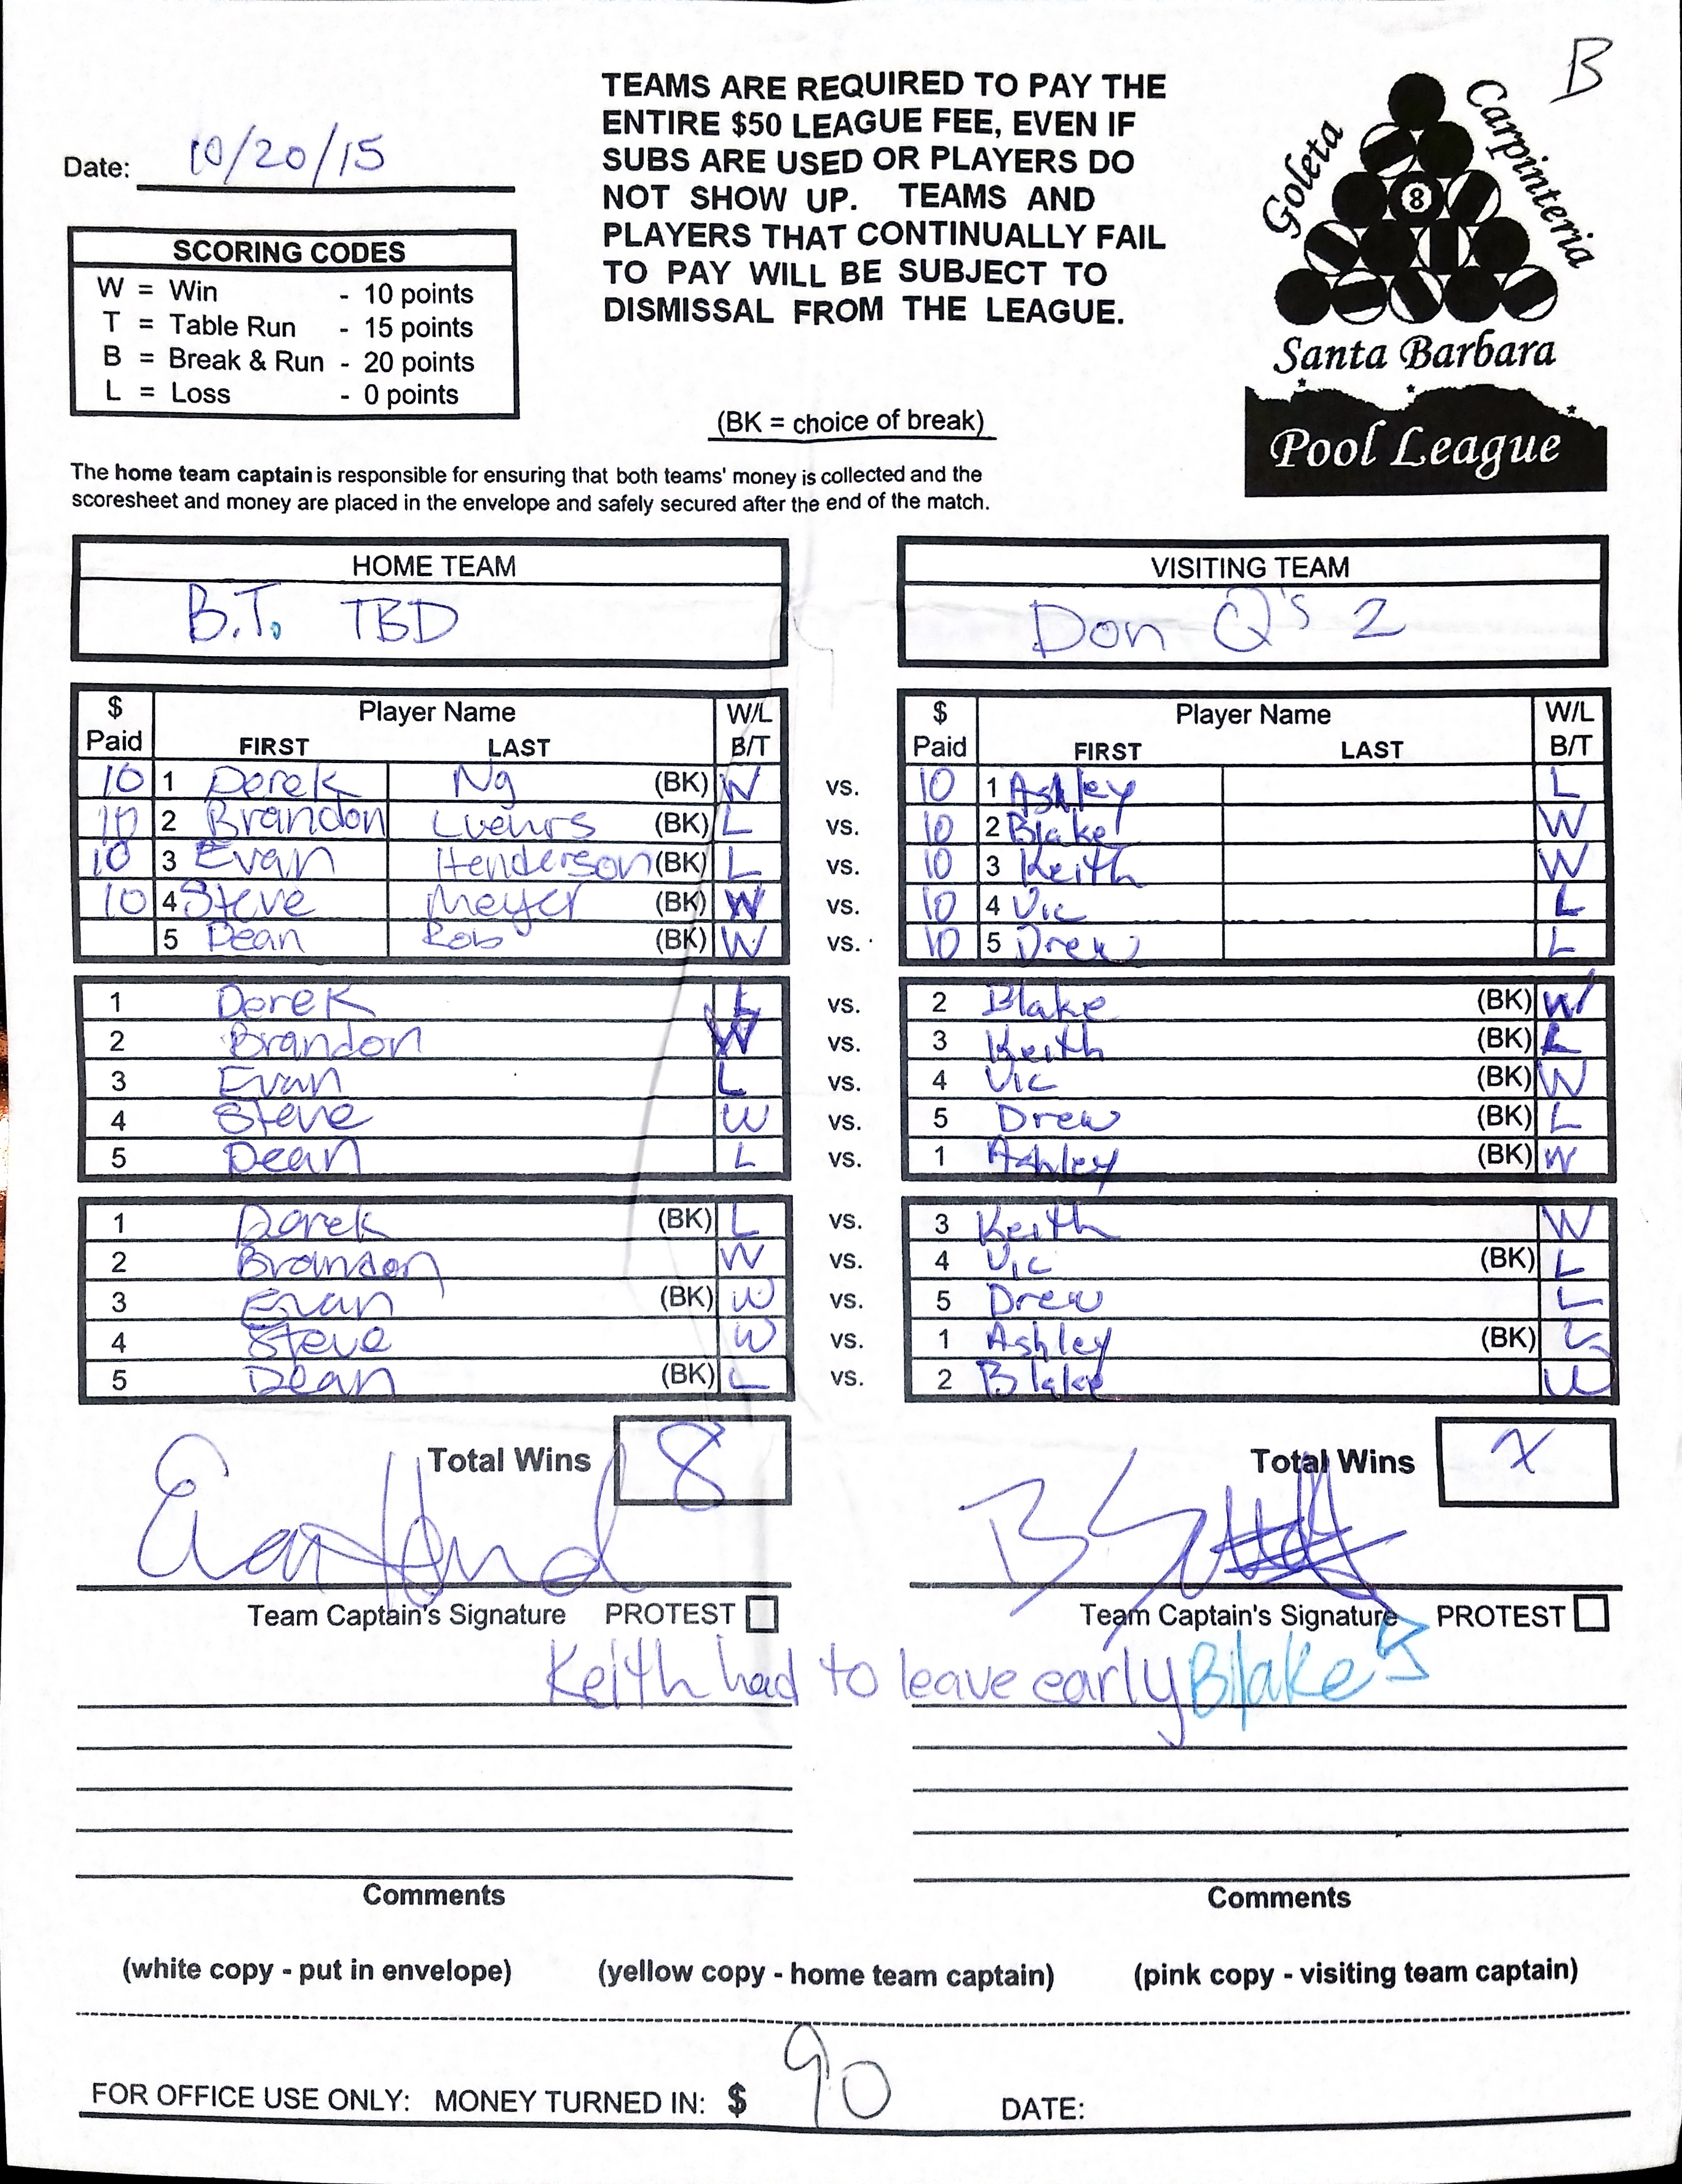 B
Date: 10/20/15
TEAMS ARE REQUIRED TO PAY THE
ENTIRE $50 LEAGUE FEE, EVEN IF
SUBS ARE USED OR PLAYERS DO
NOT SHOW UP. TEAMS AND
PLAYERS THAT CONTINUALLY FAIL
TO PAY WILL BE SUBJECT TO
DISMISSAL FROM THE LEAGUE.
Goleta
Carpinteria
8
Santa Barbara
Pool League
SCORING CODES
W = Win - 10 points
T = Table Run - 15 points
B = Break & Run - 20 points
L = Loss - 0 points
(BK = choice of break)
The home team captain is responsible for ensuring that both teams' money is collected and the
scoresheet and money are placed in the envelope and safely secured after the end of the match.
HOME TEAM VISITING TEAM
B.T. TBD Don Q's 2
$ Player Name W/L $ Player Name W/L
Paid FIRST LAST B/T Paid FIRST LAST B/T
10 1 Derek Ng (BK) W vs. 10 1 Ashley L
10 2 Brandon Luehrs (BK) L vs. 10 2 Blake W
10 3 Evan Henderson (BK) L vs. 10 3 Keith W
10 4 Steve Meyer (BK) W vs. 10 4 Vic L
5 Dean Rob (BK) W vs. 10 5 Drew L
1 Derek L vs. 2 Blake (BK) W
2 Brandon W vs. 3 Keith (BK) L
3 Evan L vs. 4 Vic (BK) W
4 Steve W vs. 5 Drew (BK) L
5 Dean L vs. 1 Ashley (BK) W
1 Derek (BK) L vs. 3 Keith W
2 Brandon W vs. 4 Vic (BK) L
3 Evan (BK) W vs. 5 Drew L
4 Steve W vs. 1 Ashley (BK) L
5 Dean (BK) L vs. 2 Blake W
Total Wins 8 Total Wins 7
Team Captain's Signature PROTEST Team Captain's Signature PROTEST
Keith had to leave early Blake
Comments Comments
(white copy - put in envelope) (yellow copy - home team captain) (pink copy - visiting team captain)
FOR OFFICE USE ONLY: MONEY TURNED IN: $ 90 DATE: